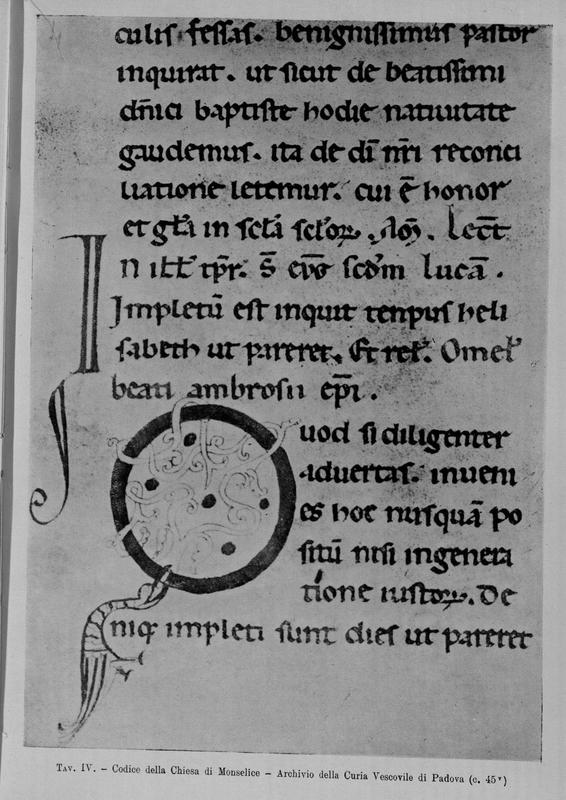 culis fessas. benignissimus pastor
inquirat. ut sicut de beatissimi
dñici baptiste hodie natiuitate
gaudemus. ita de dī nr̄i reconci
liatione letemur. cui ē honor
et gl̄a in scl̄a scl̄oꝝ. Am̄. Lect̄
In ill̄ tp̄r. S̄ evḡ scd̄m lucā.
Impletū est inquit tenpus heli
sabeth ut pareret. Et rel̄. Omel̄
beati ambrosii ep̄i.
Quod si diligenter
aduertas. inueni
es hoc nusquā po
sitū nisi ingenera
tione iustoꝝ. De
niqꝫ impleti sunt dies ut pareret
TAV. IV. – Codice della Chiesa di Monselice – Archivio della Curia Vescovile di Padova (c. 45ᵛ)